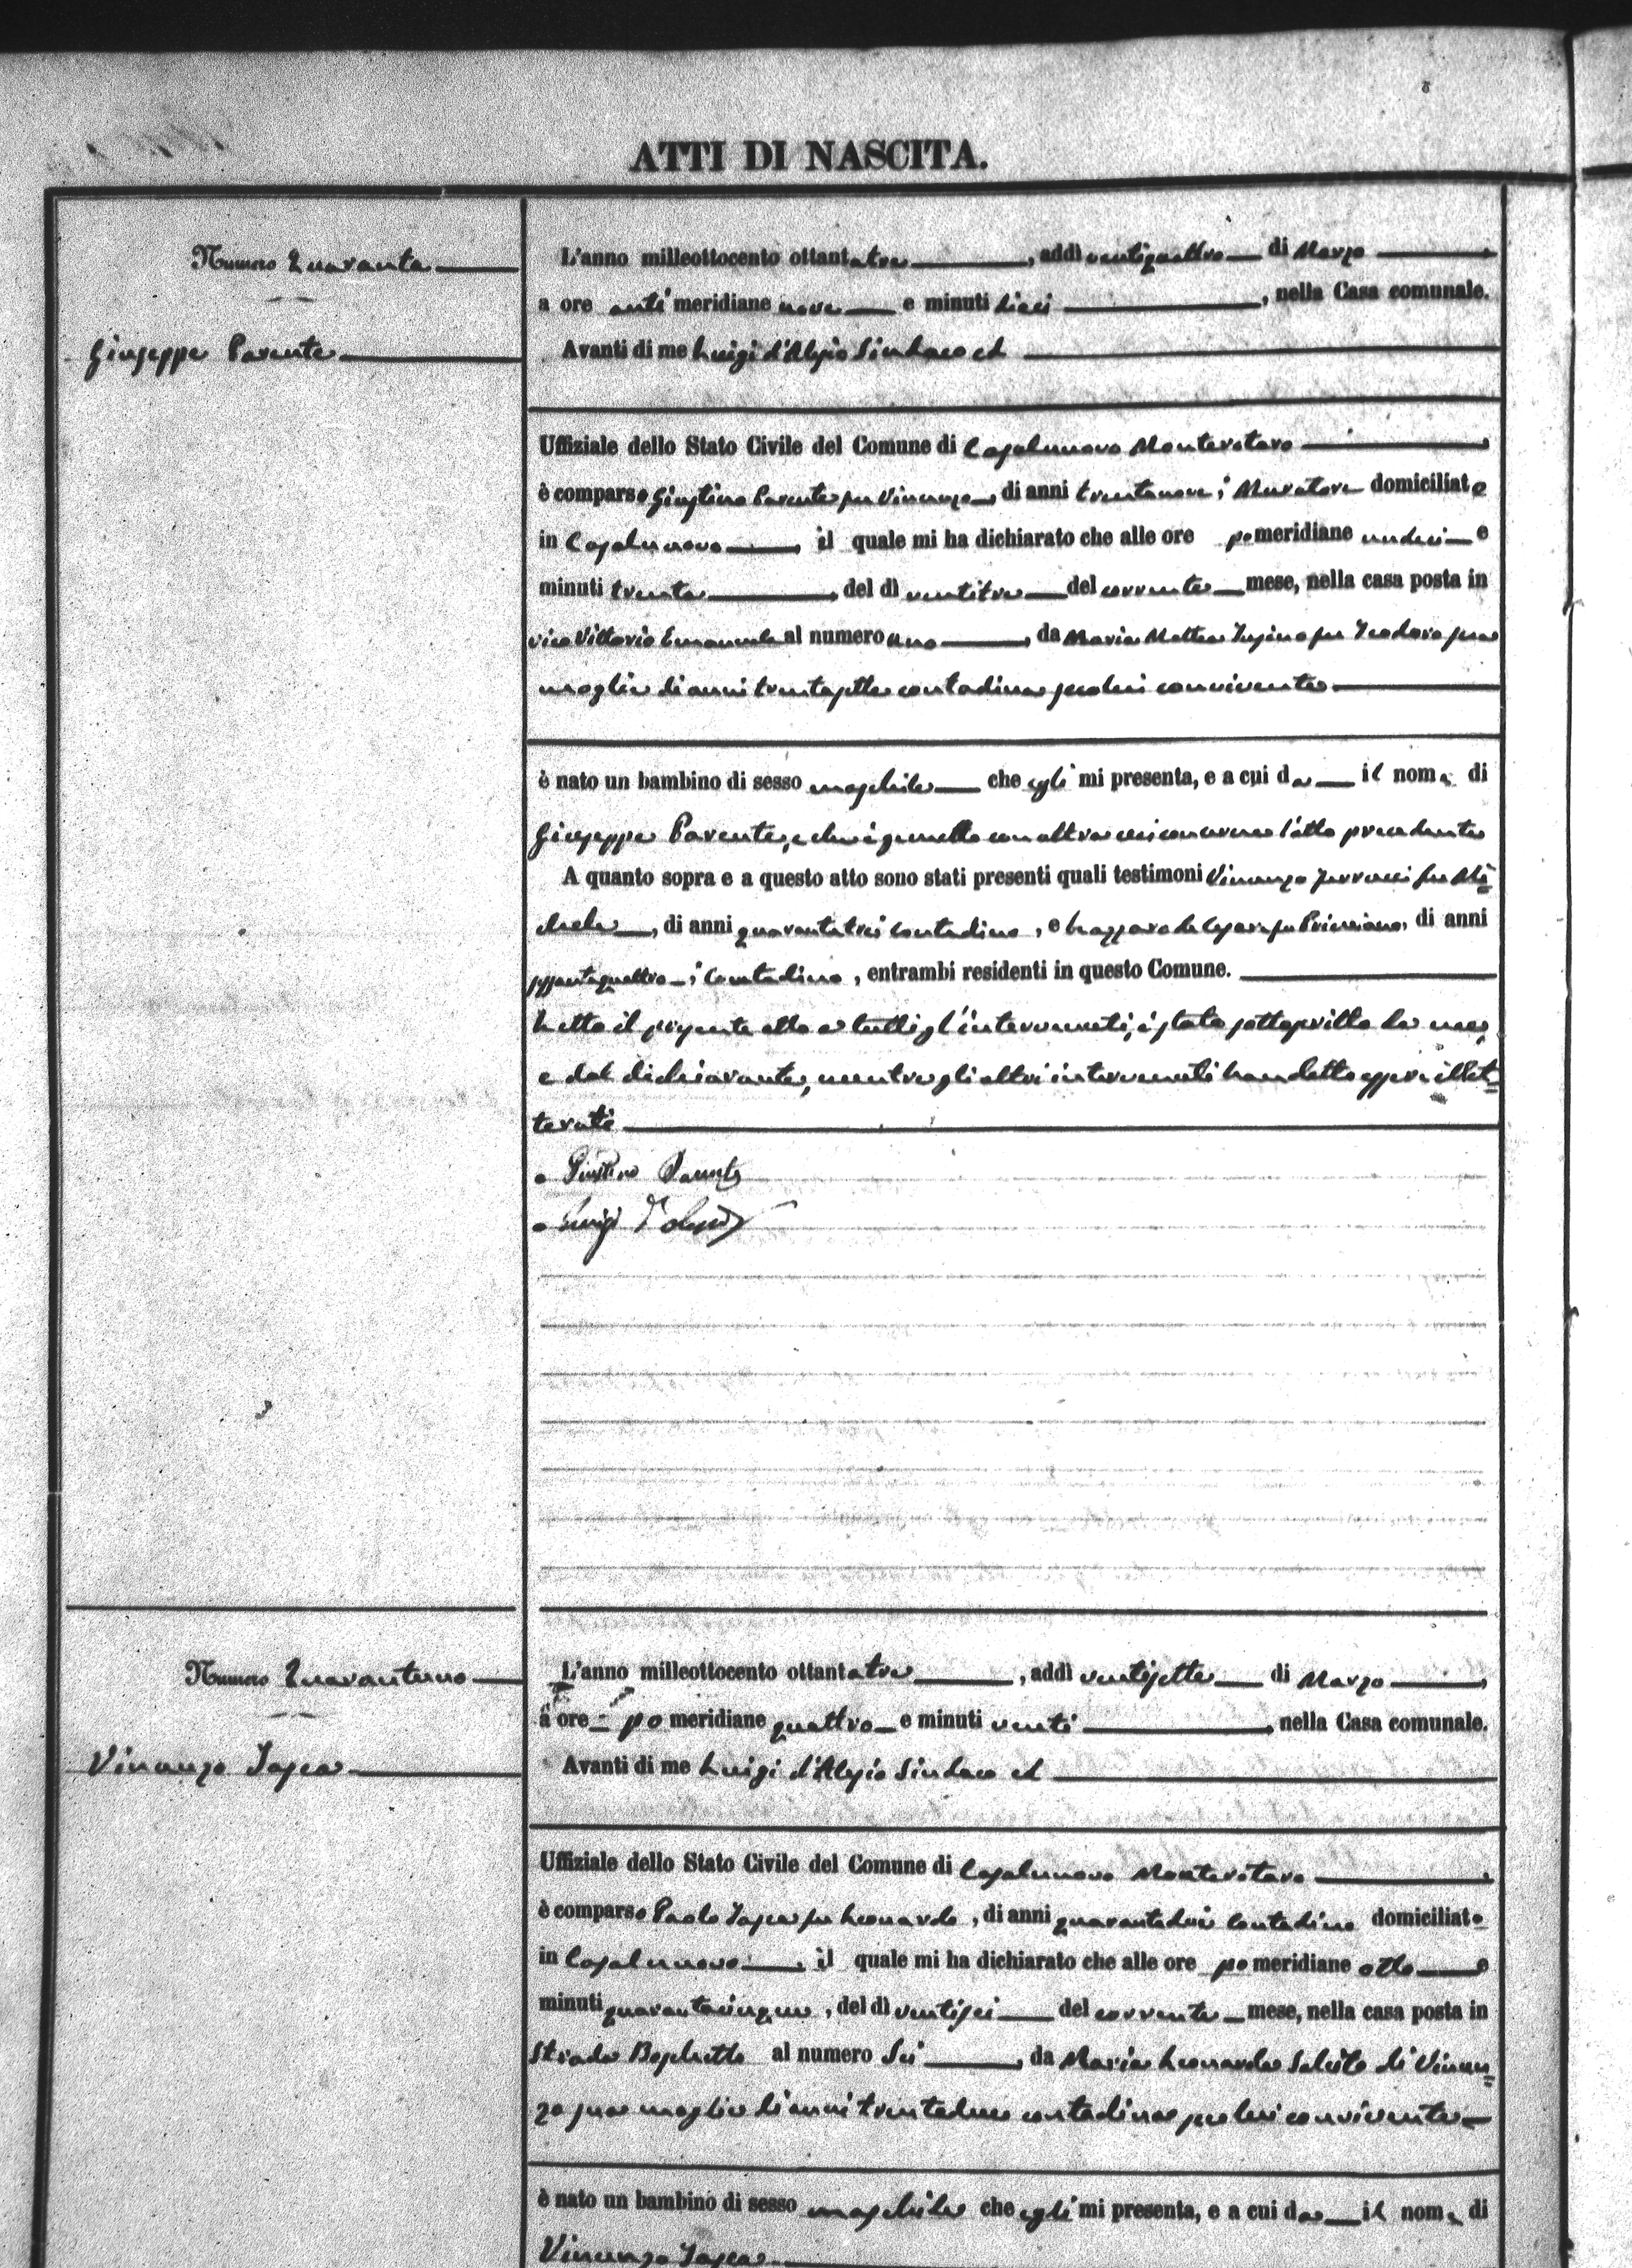 ATTI DI NASCITA.
Numero Quaranta
Giuseppe Parente
L'anno milleottocento ottantatre, addì ventiquattro di Marzo
a ore anti meridiane nove e minuti dieci, nella Casa comunale.
Avanti di me Luigi d'Alesio Sindaco ed
Uffiziale dello Stato Civile del Comune di Casalnuovo Monterotaro
è comparso Giustino Parente fu Vincenzo, di anni trentanove, Muratore domiciliato
in Casalnuovo, il quale mi ha dichiarato che alle ore pomeridiane undici e
minuti trenta, del dì ventitre del corrente mese, nella casa posta in
vico Vittorio Emanuele al numero uno, da Maria Mattea fu Teodoro sua
moglie di anni trentasette contadina secolui convivente
è nato un bambino di sesso maschile che egli mi presenta, e a cui da il nome di
Giuseppe Parente, e che è gemello con altro cui concerne l'atto precedente
A quanto sopra e a questo atto sono stati presenti quali testimoni Vincenzo fu Mi=
chele, di anni quarantatrei Contadino, e Lazzaro de Cesare fu Prieniano, di anni
sessantaquattro, Contadino, entrambi residenti in questo Comune.
Letto il presente atto a tutti gl'intervenuti, è stato sottoscritto da me,
e dal dichiarante, mentre gli altri intervenuti han detto essere illet=
terati
Giustino Parente
Luigi d'Alesio
Numero Quarantuno
Vincenzo Tosca
L'anno milleottocento ottantatre, addì ventisette di Marzo
a ore pomeridiane quattro e minuti venti, nella Casa comunale.
Avanti di me Luigi d'Alesio Sindaco ed
Uffiziale dello Stato Civile del Comune di Casalnuovo Monterotaro
è comparso Paolo Tosca fu Leonardo, di anni quarantadue Contadino domiciliato
in Casalnuovo, il quale mi ha dichiarato che alle ore pomeridiane otto e
minuti quarantacinque, del dì ventisei del corrente mese, nella casa posta in
Strada Boschetto al numero Sei, da Maria Leonarda Salcito di Vincen=
zo sua moglie di anni trentadue contadina secolui convivente
è nato un bambino di sesso maschile che egli mi presenta, e a cui da il nome di
Vincenzo Tosca